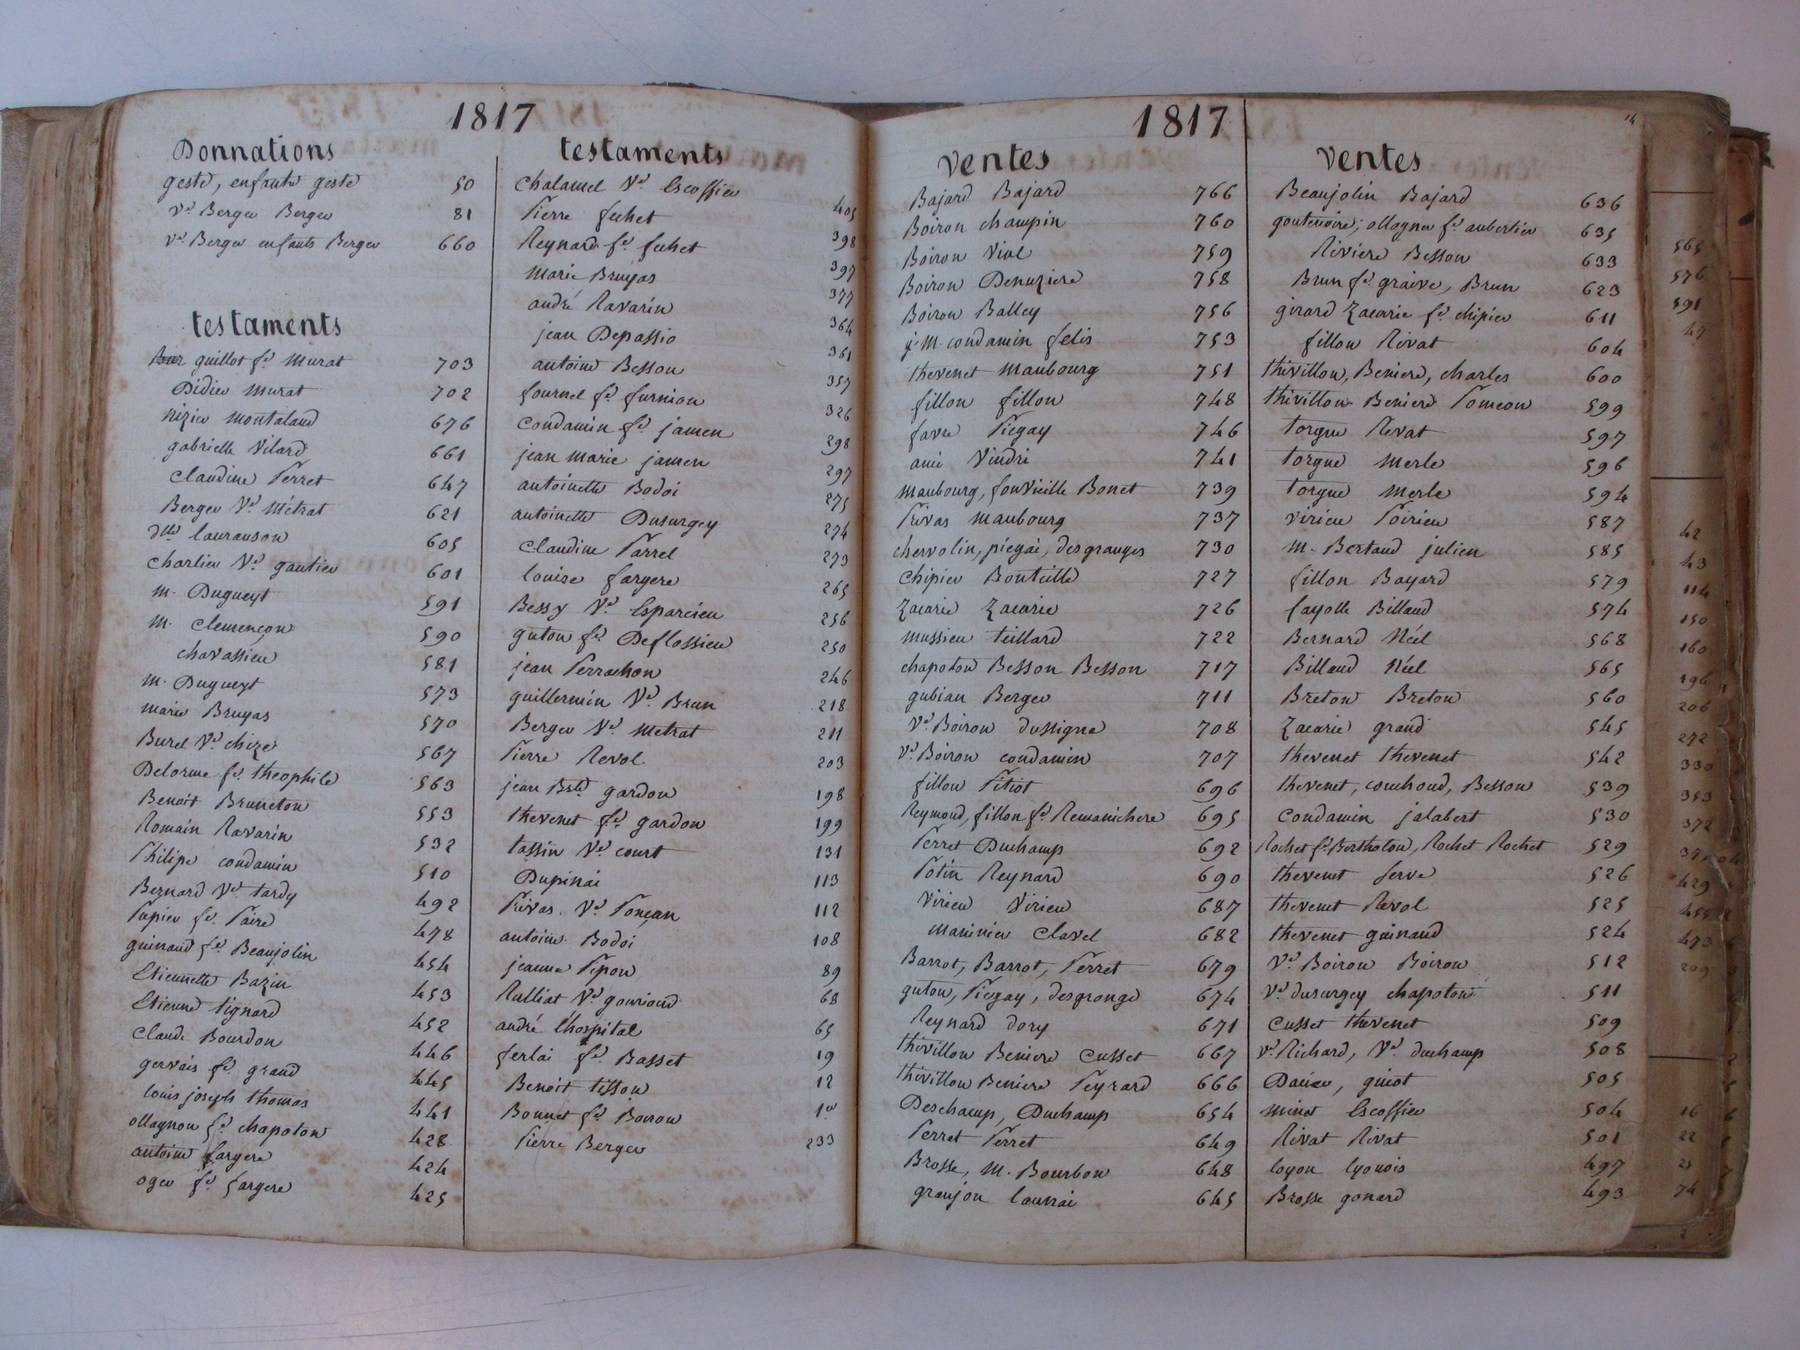 1817
Donnations
geste, enfants geste 50
ve Berger Berger 81
ve Berger enfants Berger 660
testaments
guillot fe Murat 703
Didier Murat 702
nizier montaland 676
gabrielle Vilard 661
Claudine Perret 647
Berger Ve Métrat 621
dlle lauranson 605
Charlier Ve gautier 601
M. Dugueyt 591
M. Clemençon 590
chavassieu 581
M. Dugueyt 573
marie Bruyas 570
Burel Ve chize 567
Delorme fe theophile 563
Benoit Bruneton 553
Romain Ravarin 532
Philipe condamin 510
Bernard Ve tardy 492
Papier fe Paire 478
guinand fe Beaujolin 454
Etiennette Bazin 453
Etienne tignard 452
Claude Bourdon 446
gervais fe grand 445
louis joseph thomas 441
ollagnon fe chapoton 428
antoine fargere 424
oger fe fargere 425
testaments
Chalamel Ve Escoffier 405
Pierre fuhet 398
Reynard fe fuhet 397
Marie Bruyas 377
andré Ravarin 364
jean Depassio 361
antoine Besson 357
fournel fe furnion 326
Condamin fe jamen 298
jean marie jamen 297
antoinette Bodoi 275
antoinette Dusurgey 274
Claudine Parrel 273
louise fargere 265
Bessy Ve Esparcieu 256
guton fe Deflassieu 250
jean Perrachon 246
guillermin Ve Brun 218
Berger Ve Metrat 211
Pierre Revol 203
jean Bste gardon 198
thevenet fe gardon 199
tassin Ve court 131
Dupinai 113
Privas Ve Ponçan 112
antoine Bodoi 108
jeanne Pipon 89
Ralliat Ve gourioud 68
andré l'hospital 65
ferlai fe Basset 19
Benoit tisson 12
Bonnet fe Boiron 1er
Pierre Berger 233
1817
Ventes
Bajard Bajard 766
Boiron champin 760
Boiron Vial 759
Boiron Denuziere 758
Boiron Balley 756
j. M. condamin felix 753
thevenet Maubourg 751
fillon fillon 748
favre Piegay 746
ami Vindri 741
Maubourg, fonvieille Bonet 739
Privas Maubourg 737
chervolin, piegai, desgranges 730
Chipier Bonteille 727
Zacarie Zacarie 726
mussieu teillard 722
chapoton Besson Besson 717
gubian Berger 711
Ve Boiron dussigne 708
Ve Boiron condamin 707
fillon Pitiot 696
Reymond, fillon fe Remanichere 695
Perret Duchamp 692
Potin Reynard 690
Virieu Virieu 687
marinier Clavel 682
Barrot, Barrot, Perret 679
guton, Piegay, desgrange 674
Reynard dory 671
thivillon Beniere Cusset 667
thivillon Beniere Peyrard 666
Deschamp, Duchamp 654
Perret Perret 649
Brosse, M. Bourbon 648
granjon laurrai 645
Ventes
Beaujolin Bajard 636
goutenoire, ollagner fe aubertier 635
Riviere Besson 633
Brun fe graive, Brun 623
girard Zacarie fe chipier 611
fillon Rivat 604
thivillon, Beniere, charles 600
thivillon Beniere Pomeon 599
torgue Revat 597
torgue Merle 596
torgue Merle 594
Virieu Poirieu 587
M. Bertaud julien 585
fillon Bayard 579
fayolle Billaud 574
Bernard Néel 568
Billaud Néel 565
Breton Breton 560
Zacarie grand 545
thevenet thevenet 542
thevenet, couchoud, Besson 539
Condamin jalabert 530
Rochet fe Bertholon, Rochet Rochet 529
thevenet serve 526
thevenet Revol 525
thevenet guinaud 524
Ve Boiron Boiron 512
Ve dusurgey chapoton 511
Cusset thevenet 509
Ve Richard, Ve duchamp 508
guiot 505
minot Escoffier 504
Rivat Rivat 501
loyon lyonois 497
Brosse gonard 493
14
565
576
591
47
42
43
114
150
160
196
206
272
330
353
372
429
455
473
209
16
22
25
74